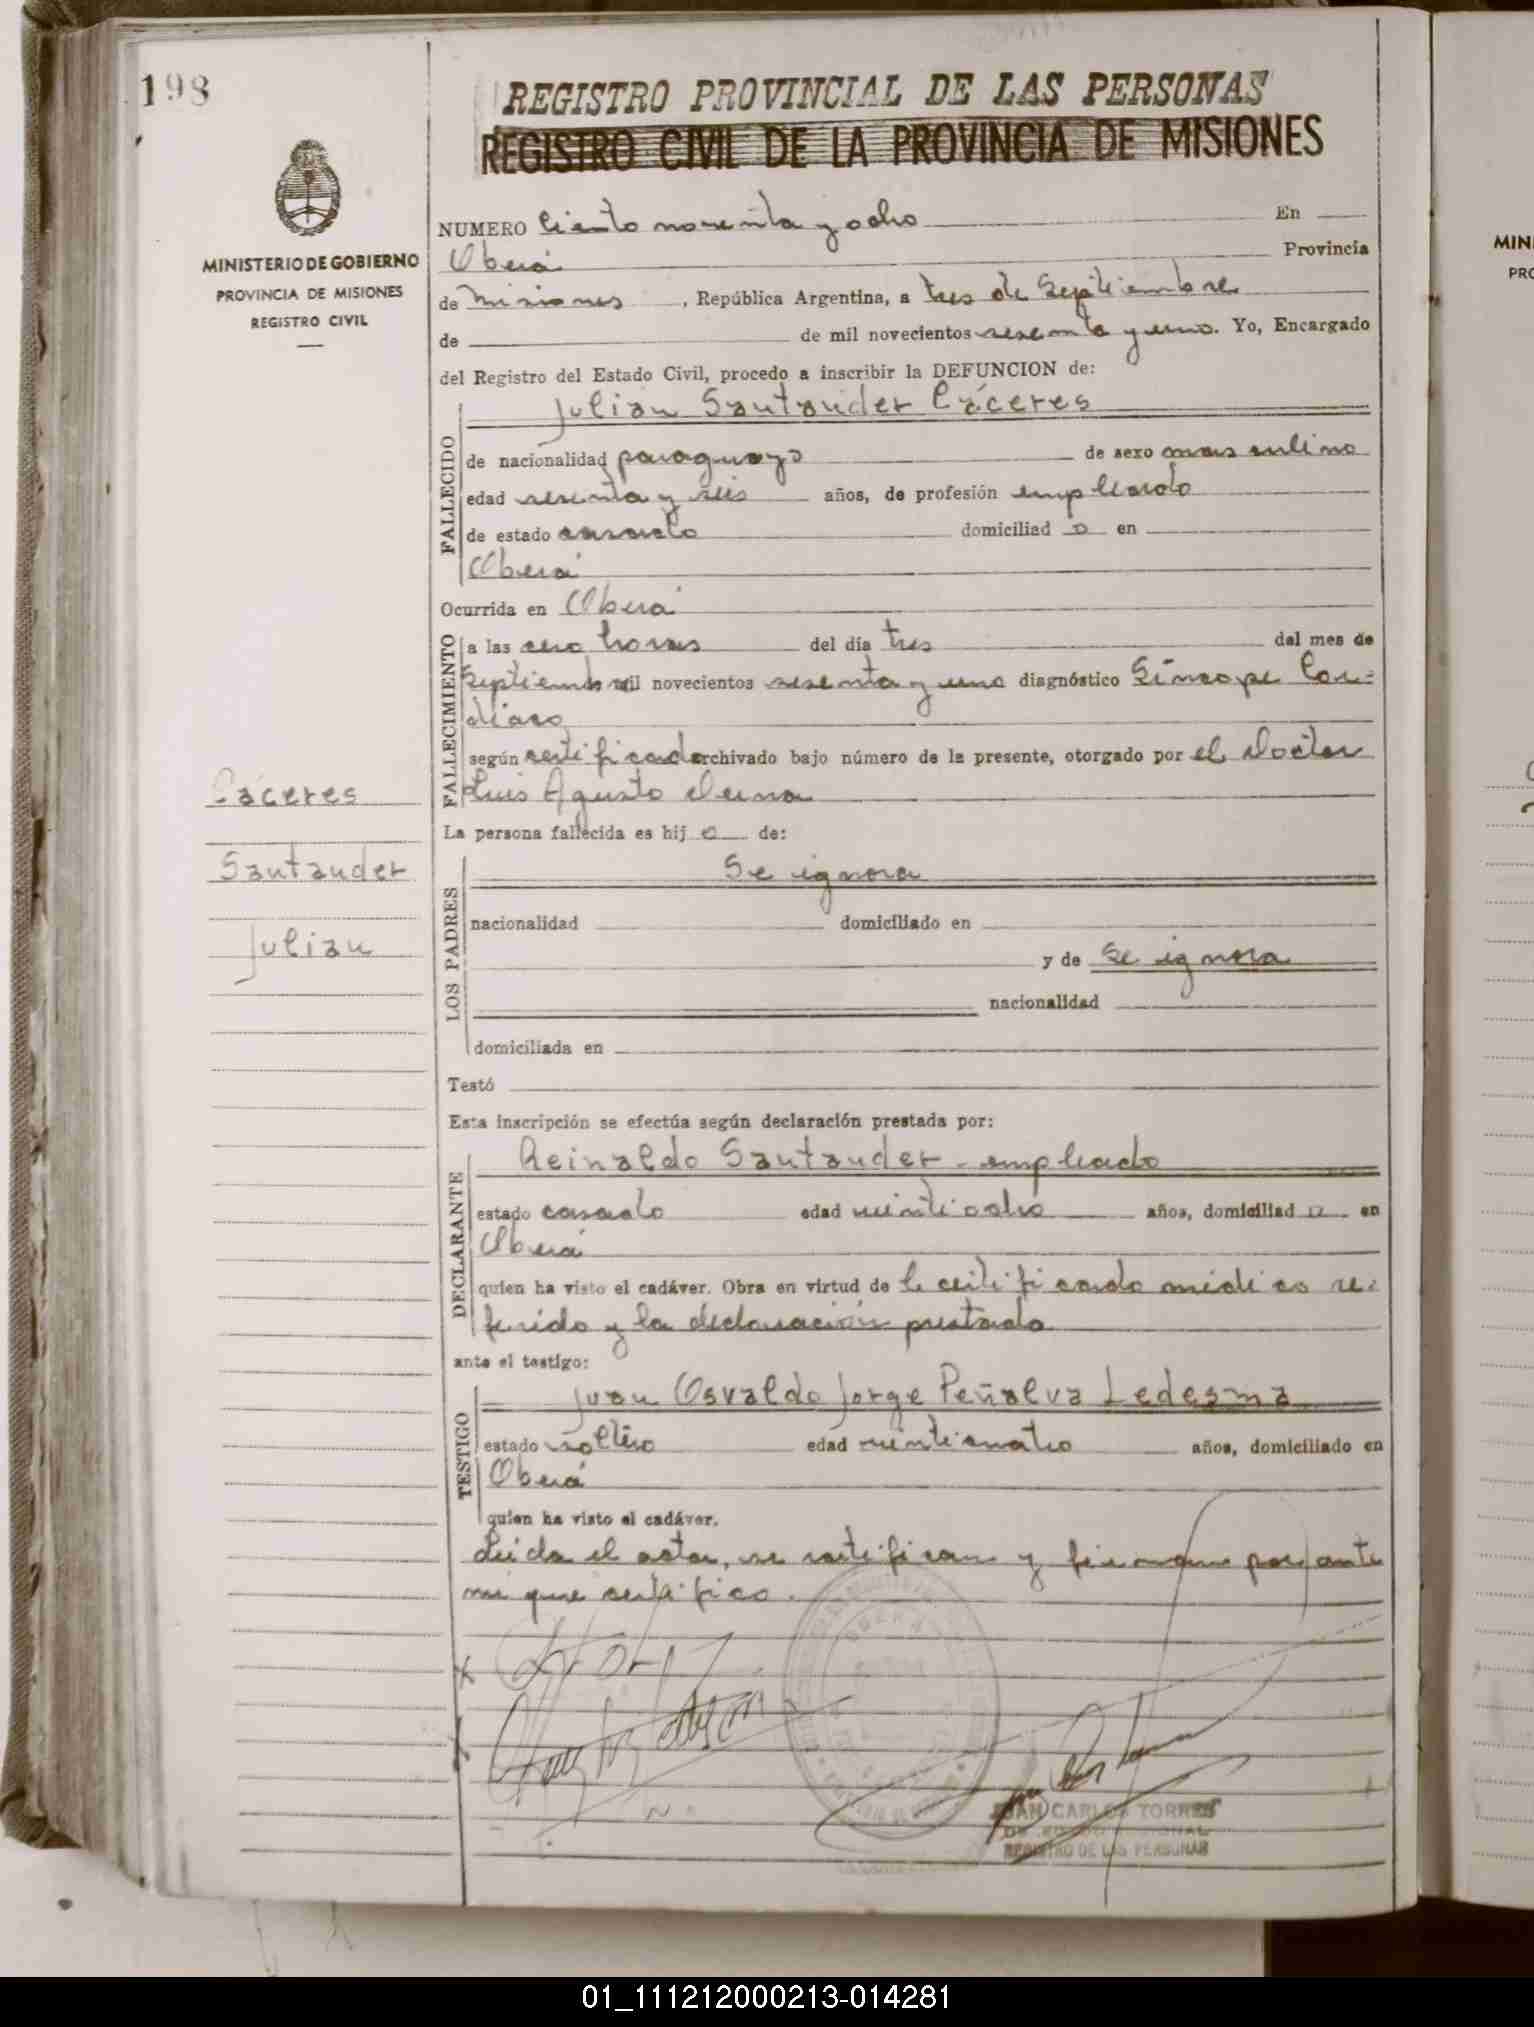 198
REGISTRO PROVINCIAL DE LAS PERSONAS
REGISTRO CIVIL DE LA PROVINCIA DE MISIONES
MINISTERIO DE GOBIERNO
PROVINCIA DE MISIONES
REGISTRO CIVIL
NUMERO Ciento noventa y ocho En
Oberá Provincia
de Misiones, República Argentina, a tres de Septiembre
de de mil novecientos sesenta y uno. Yo, Encargado
del Registro del Estado Civil, procedo a inscribir la DEFUNCION de:
Julian Santander Cáceres
FALLECIDO
de nacionalidad paraguayo de sexo masculino
edad sesenta y seis años, de profesión empleado
de estado casado domiciliad o en
Oberá
Ocurrida en Oberá
FALLECIMIENTO
a las cero horas del día tres dal mes de
Septiembre mil novecientos sesenta y uno diagnóstico Síncope Car-
diaco
según certificado archivado bajo número de la presente, otorgado por el Doctor
Luis Agusto
La persona fallecida es hij o de:
Cáceres
Santander
Julian
LOS PADRES
Se ignora
nacionalidad domiciliado en
y de Se ignora
nacionalidad
domiciliada en
Testó
Esta inscripción se efectúa según declaración prestada por:
DECLARANTE
Reinaldo Santander - empleado
estado casado edad veintiocho años, domiciliad o en
Oberá
quien ha visto el cadáver. Obra en virtud de le certificado médico re-
ferido y la declaración prestada
ante el testigo:
TESTIGO
Juan Osvaldo Jorge Peñalva Ledesma
estado soltero edad veinticuatro años, domiciliado en
Oberá
quien ha visto el cadáver.
Leida el acta, se ratifican y firman por ante
mi que certifico.
JUAN CARLOS TORRES
REGISTRO DE LAS PERSONAS
MIN
PRO
01_111212000213-014281